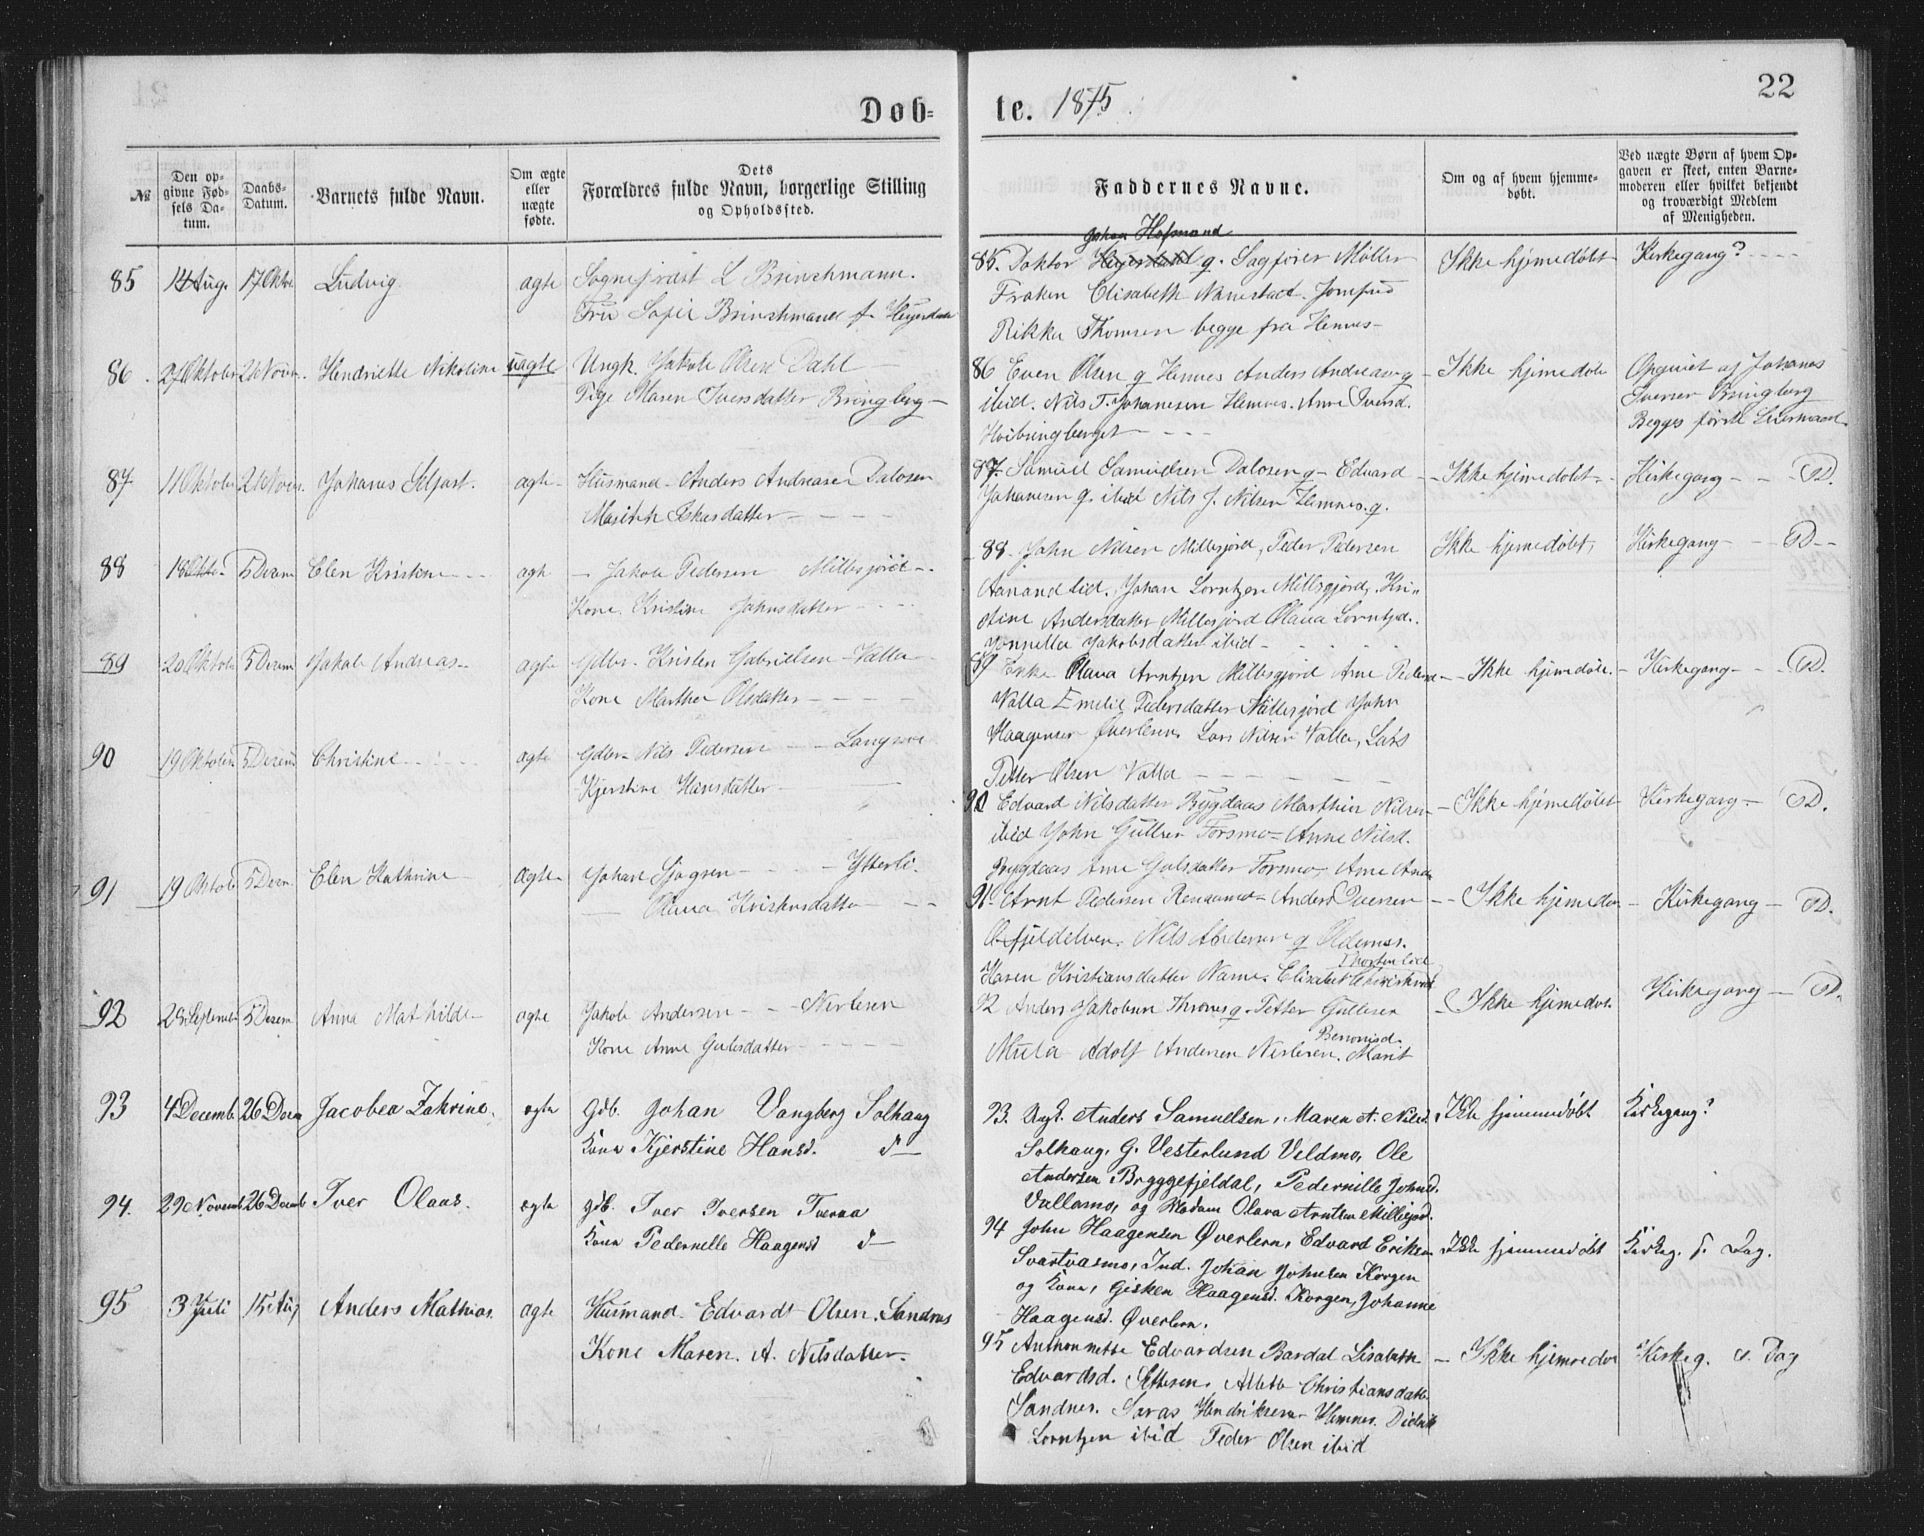 22
Døb-
te. 1875
№
Den op-
givne Fød-
sels Da-
tum.
Daabs-
Datum.
Barnets fulde Navn.
Om ægte
eller
uægte
fødte.
Dets
Forældres fulde Navn, borgerlige Stilling
og Opholdssted.
Faddernes Navne.
Om og af hvem hjemme-
døbt.
Ved uægte Børn af hvem Op-
gaven er skeet, enten Barne-
moderen eller hvilket bekjendt
og troværdigt Medlem
af Menigheden.
85 14 Aug. 17 Oktr. Ludvig agte Sogneprest L Brinchmann.
Fru Sofie Brinchmann f. Heyerdahl
Johan Hofmand
85. Doktor g. Sagfører Møller
Frøken Elisabeth Jomfru
Rikka Thomsen begge fra Hemnes-
Ikke hjemedøbt Kirkegang?
86. 2 Oktober 21 Novem. Henriette Nikoline uagte Ungk. Jakob Olsen Dahl
Pige Maren Iversdatter Bringberg-
86 Even Olsen g Hemnes Anders Andreasen g
ibid. Nils T. Johanesen Hemnes. Anne Iversd.
Hvibringberget
Ikke hjemedøbt Opgivet af Johanes
Iversen Bringberg
Begges første Leiermaal.
87. 11 Oktober 21 Novem. Johanes Seljast. agte Husmand Anders Andreasen Dalosen
87. Samuel Samuelsen Dalosen g- Edvard
Johansen g. ibid Nils J. Nilsen Hemnes. g.
Ikke hjemedøbt Kirkegang - - D.
88 18 Oktbr. 5 Decem Elen Kristine agte - Jakob Pedersen Millesjord-
Kone. Kristine Johnsdatter
88. John Nilsen Millesjord, Peder Pedersen
Aanandlid. Johan Lorntzen Millesjord, Kri-
stine Andersdatter Millesjord Olava Lorntzd.
Jakobsdatter ibid-
Ikke hjemedøbt, Kirkegang - - D-
89 20 Oktob 5 Decem Jakob Andreas- agte Gdbr. Kristen Gabrielsen - Valla-
Kone Marthea Olsdatter
89 Enke Olava Arntzen Millesjord Arne Pedersen
Valla Emelie Pedersdatter Millesjord John
Haagensen Øverleren, Lars Nilsen Valla, Lars
Petter Olsen Valla
Ikke hjemedøbt. - Kirkegang - - D.
90 19 Oktober 5 Decem Christine agte Gdbr. Nils Pedersen
Kjerstine Hansdatter
90 Edvard Nilsdatter Bygdaas Marthin Nilsen
ibid John Gullsen Forsmo- Anne Nilsd.
Bygdaas Ane Gulsdatter Forsmo, Ane
Ikke hjemedøbt Kirkegang - D.
91 19 Oktob 5 Decm. Elen Kathrine agte Johan Sjøgren Ytterli.
Olava Kristensdatter
91. Arnt Pedersen Anders Iversen
Nils Andersen g Oldernes.
Karen Kristiansdatter Elisabet
- Ikke hjemedøb - Kirkegang - D.
92 28 September 5 Decem Anna Mathilde- agte Jakob Andersen - - Nerleren
Kone Anne Gulsdatter
92 Anders Jakobsen g. Petter Gullesen
Benonisd.
Mula Adolf Andersen Nerleren. Marit
Ikke hjemedøbt. Kirkegang - D.
93 4 Decemb. 26 Decm Jacobea Zakrine. agte Gdb. Johan Vangberg Solhaug
Kone Kjerstine Hansd. d-
93. Ungk. Anders Samuelsen, Maren A. Nilsd.
Solhaug, G. Vesterlund Veldmo, Ole
Andersen Bryggefjeldal, Pedernille Johnsd.
Vallamo, og Madam Olava Arntzen Millesjord.
Ikke hjemmedøbt Kirkegang?
94. 29 Novemb. 26 Decemb Iver Olaas. agte gdb. Iver Iversen Tveraa
Kone Pedernelle Haagensd d-
94 John Haagensen Øverleren, Edvard Eriksen
Svartvasmo, Ind. Johan Johnsen Korgen
og Kone, Gisken Haagensd. Korgen, Johanne
Haagensd. Øverleren.
Ikke hjemmedøbt Kirkeg. s. Dag.
95 3 Juli 15 Aug Anders Mathias. agte Husmand Edvardt Olsen. Sandnes
Kone Maren. A. Nilsdatter.
95 Anthonnette Edvardsen Bardal Lisabeth
Edvardsd. Settesen. Albeth Christiansdatt.
Sandnes. Saras Hendriksen Hemnes. Didrik
Lorntzen ibid Peder Olsen ibid
- Ikke hjemedøbt Kirkeg. s. Dag